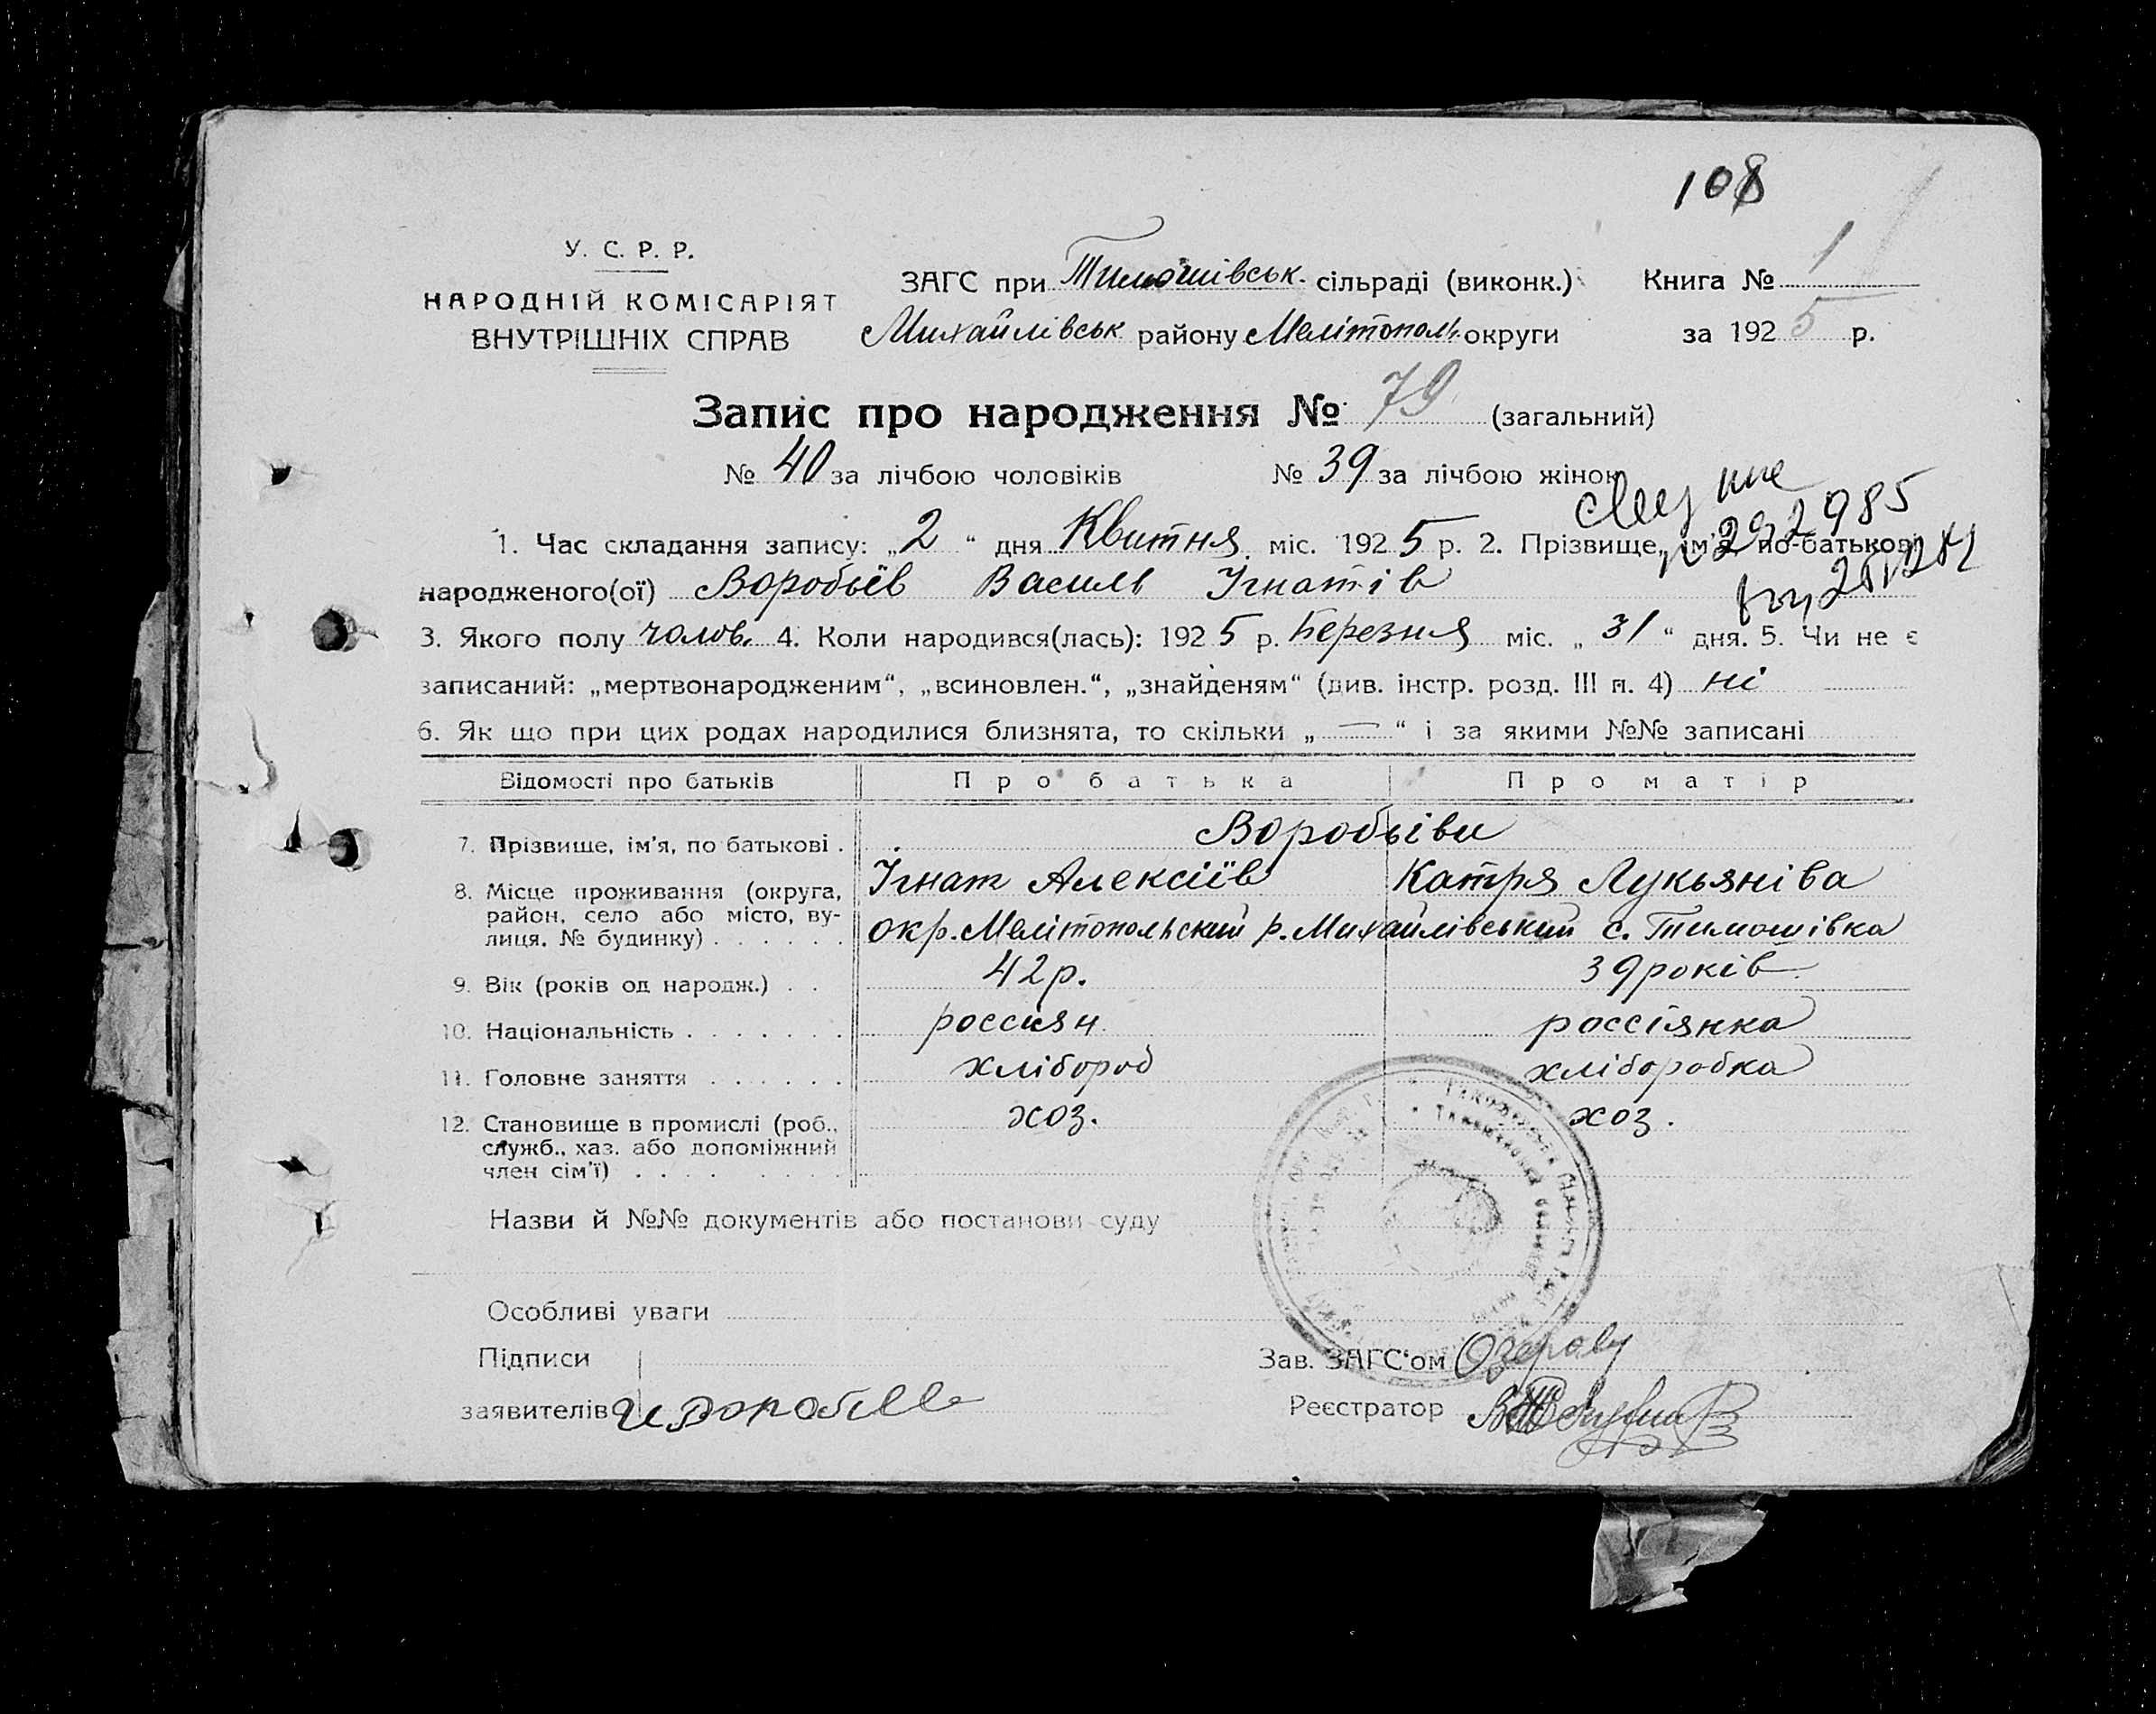 108
У. С. Р. Р.
НАРОДНІЙ КОМІСАРІЯТ
ВНУТРІШНІХ СПРАВ
ЗАГС при Тимошівськ. сільраді (виконк.) Книга № 1
Михайлівськ району Мелітополь. округи за 1925 р.
Запис про народження № 79 (загальний)
№ 40 за лічбою чоловіків № 39 за лічбою жінок
1. Час складання запису: „2“ дня Квитня міс. 1925 р. 2. Прізвище, ім'я, по-батькові
народженого(ої) Воробьёв Василь Ігнатів
3. Якого полу чолов. 4. Коли народився(лась): 1925 р. Березня міс. „31“ дня. 5. Чи не є
записаний: „мертвонародженим“, „всиновлен.“, „знайденям“ (див. інстр. розд. III п. 4) ні
6. Як що при цих родах народилися близнята, то скільки „—“ і за якими №№ записані
Відомості про батьків Про батька Про матір
7. Прізвище, ім'я, по батькові . Воробьіви
Ігнат Алексіїв Катря Лукьяніва
8. Місце проживання (округа,
район, село або місто, ву-
лиця, № будинку) . . . . . . окр. Мелітопольский р. Михайлівський с. Тимошівка
9. Вік (років од народж.) . . 42 р. 39 років
10. Національність . . . . . . . россиян россіянка
11. Головне заняття . . . . . . хлібороб хліборобка
12. Становище в промислі (роб., хоз. хоз.
служб., хаз. або допоміжний
член сім'ї) . . . . . . . .
Назви й №№ документів або постанови суду
Особливі уваги
Підписи
заявителів И Воробьев
Зав. ЗАГС‘ом
Реєстратор